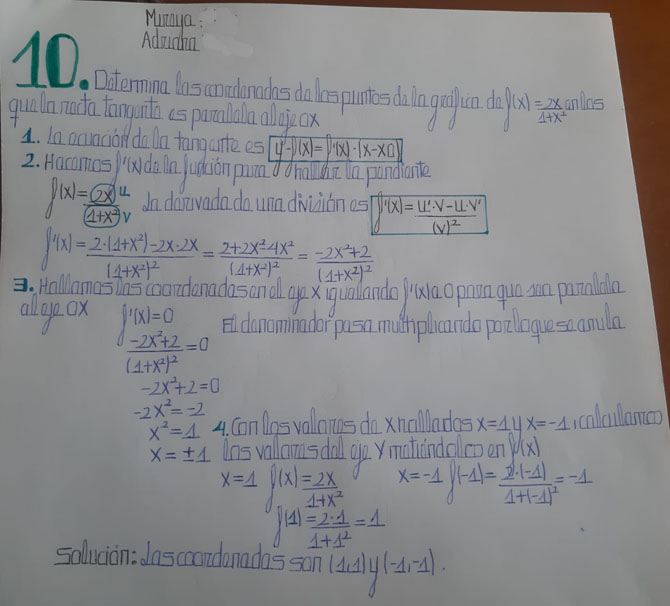 Muraya
Adriana
10. Determina las coordenadas de los puntos de la gráfica de f(x) = 2x/1+x² en los
que la recta tangente es paralela al eje OX
1. La ecuación de la tangente es y-f(x) = f'(x)·(x-x0)
2. Hacemos f'(x) de la función para hallar la pendiente
f(x) = 2x/1+x² u v La derivada de una división es f'(x) = u'·v-u·v'/(v)²
f'(x) = 2·(1+x²)-2x·2x/(1+x²)² = 2+2x²-4x²/(1+x²)² = -2x²+2/(1+x²)²
3. Hallamos las coordenadas en el eje X igualando f'(x) a 0 para que sea paralela
al eje OX
f'(x)=0 El denominador pasa multiplicando por lo que se anula
-2x²+2/(1+x²)² = 0
-2x²+2=0
-2x²=-2
x²=1
x=±1
4. Con los valores de x hallados x=1 y x=-1, calculamos
los valores del eje Y metiéndolos en f(x)
x=1 f(x) = 2x/1+x² x=-1 f(-1) = 2·(-1)/1+(-1)² = -1
f(1) = 2·1/1+1² = 1
Solución: Las coordenadas son (1,1) y (-1,-1).